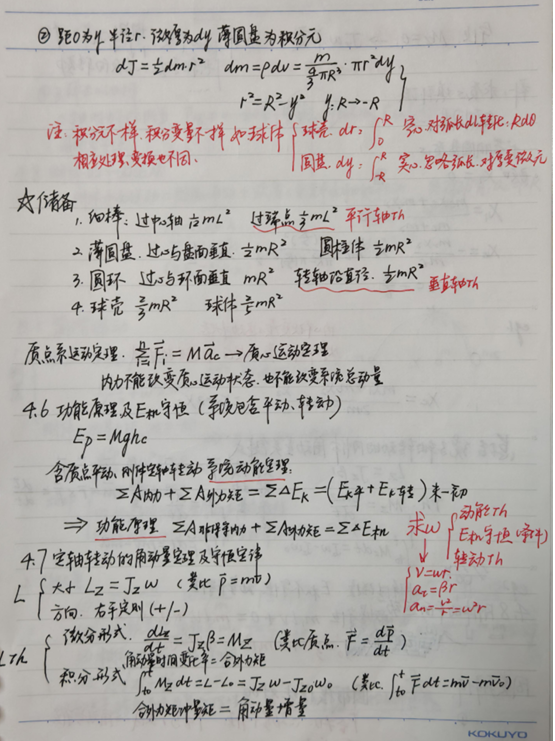 ② 距O为y,半径r.设厚为dy 薄圆盘为积分元
dJ=½dm·r² dm=ρdv=m/(4/3 πR³)·πr²dy
r²=R²-y² y:R→-R
注:积分元不一样,积分变量不一样 如球体
球壳.dr:∫₀ᴿ 实心.对弧长dl转化:Rdθ
相应处理、变换也不同.
圆盘.dy:∫₋ᴿᴿ 实心.忽略弧长.对厚度微元
☆储备
1.细棒:过中心轴 1/12 mL² 过端点 1/3 mL² 平行轴Th
2.薄圆盘.过心与盘面垂直.½mR² 圆柱体 ½mR²
3.圆环 过心与环面垂直 mR² 转轴沿直径.½mR² 垂直轴Th
4.球壳 2/3 mR² 球体 2/5 mR²
质点系运动定理.ΣF⃗ᵢ=Ma⃗c→质心运动定理
内力不能改变质心运动状态.也不能改变系统总动量
4.6 功能原理及E机守恒(系统包含平动、转动)
Ep=Mghc
含质点平动、刚体定轴转动 系统动能定理:
ΣA内力+ΣA外力矩=ΣΔEk=(Ek平+Ek转)末-初
⇒ 功能原理 ΣA非保守内力+ΣA外力矩=ΣΔE机
求ω
动能Th
E机守恒(条件)
转动Th
v=ωr
aτ=βr
aₙ=v²/r=ω²r
4.7 定轴转动的角动量定理及守恒定律
L
大小 Lz=Jzω (类比 p⃗=mv⃗)
方向.右手定则(+/-)
LTh
微分形式.dLz/dt=Jzβ=Mz (类比质点.F⃗=dp⃗/dt)
角动量时间变化率=合外力矩
积分形式 ∫ₜ₀ᵗ Mzdt=L-L₀=Jzω-Jz₀ω₀ (类比.∫ₜ₀ᵗ F⃗dt=mv⃗-mv⃗₀)
合外力矩冲量矩=角动量增量
KOKUYO